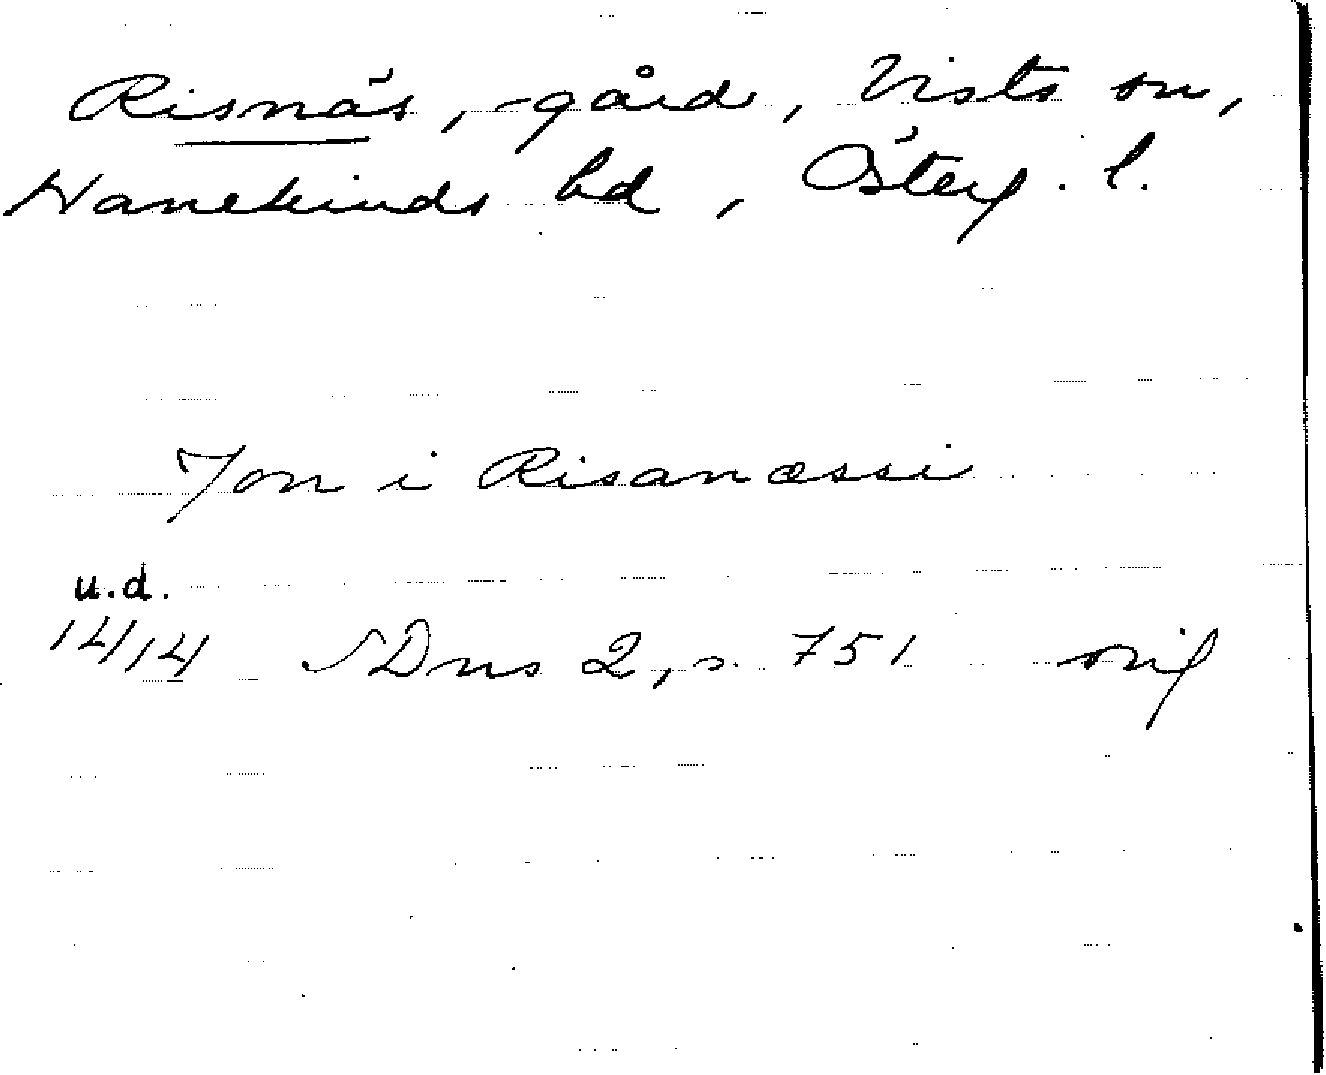 Risnäs, -gård, Vists sn,
Hanekinds hd, Österg. l.
Jon i Risanæssi
u.d.
14/14 SDns 2, s. 751 orig